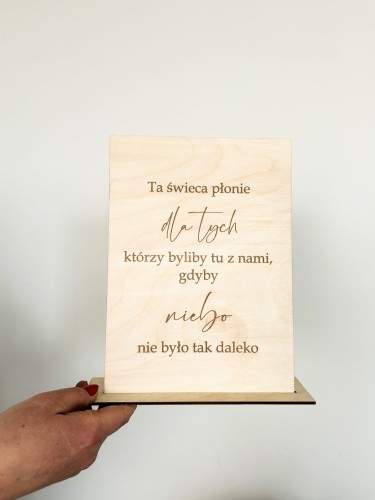 Ta świeca płonie
dla tych
którzy byliby tu z nami,
gdyby
niebo
nie było tak daleko